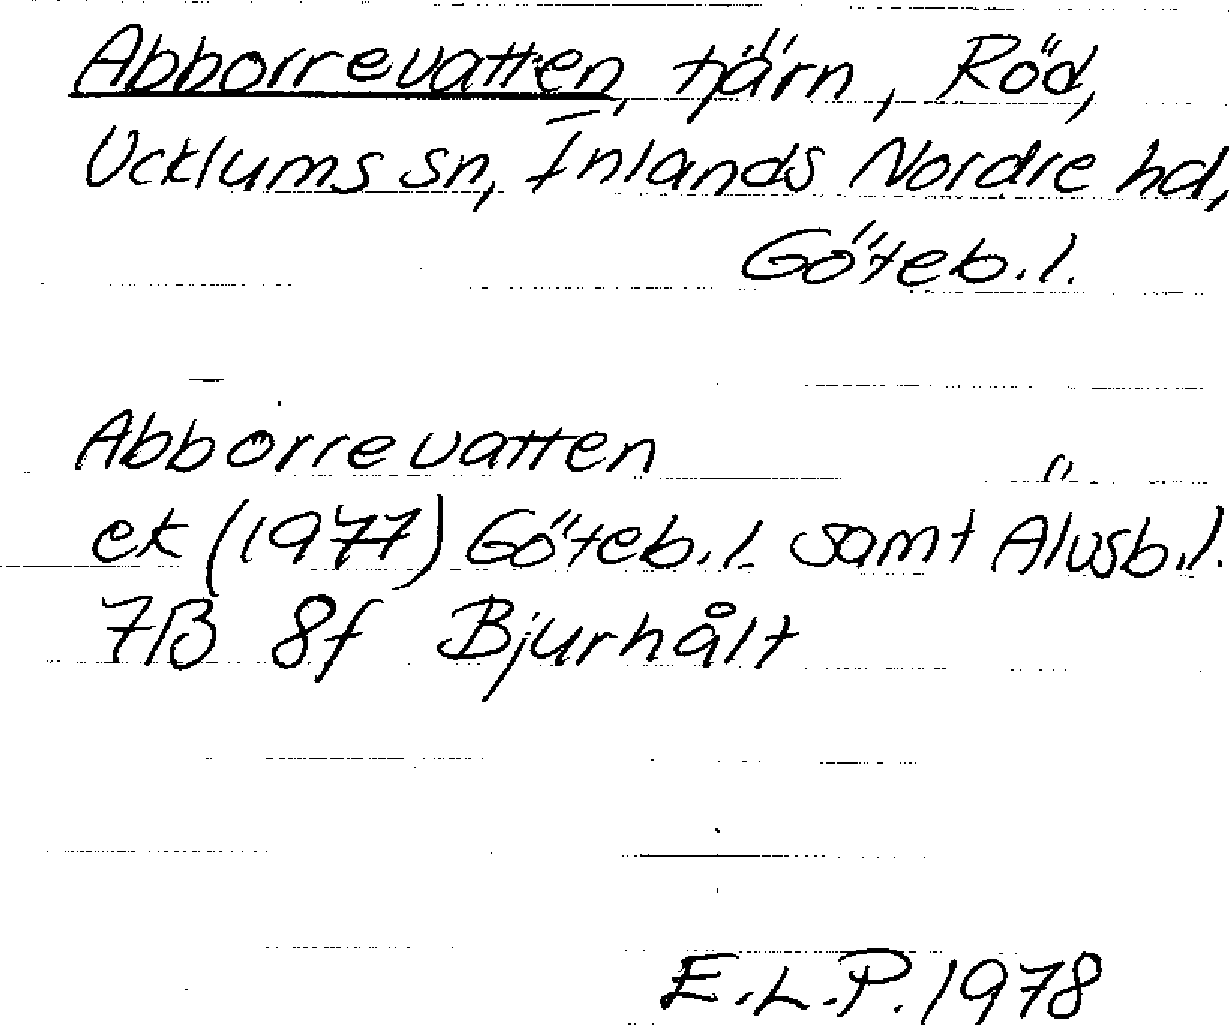 Abborrevatten, tjärn, Röd,
Ucklums sn, Inlands Nordre hd,
Göteb.l.
Abborrevatten
ek (1977) Göteb.l. samt Älvsb.l.
7B 8f Bjurhålt
E.L.P. 1978